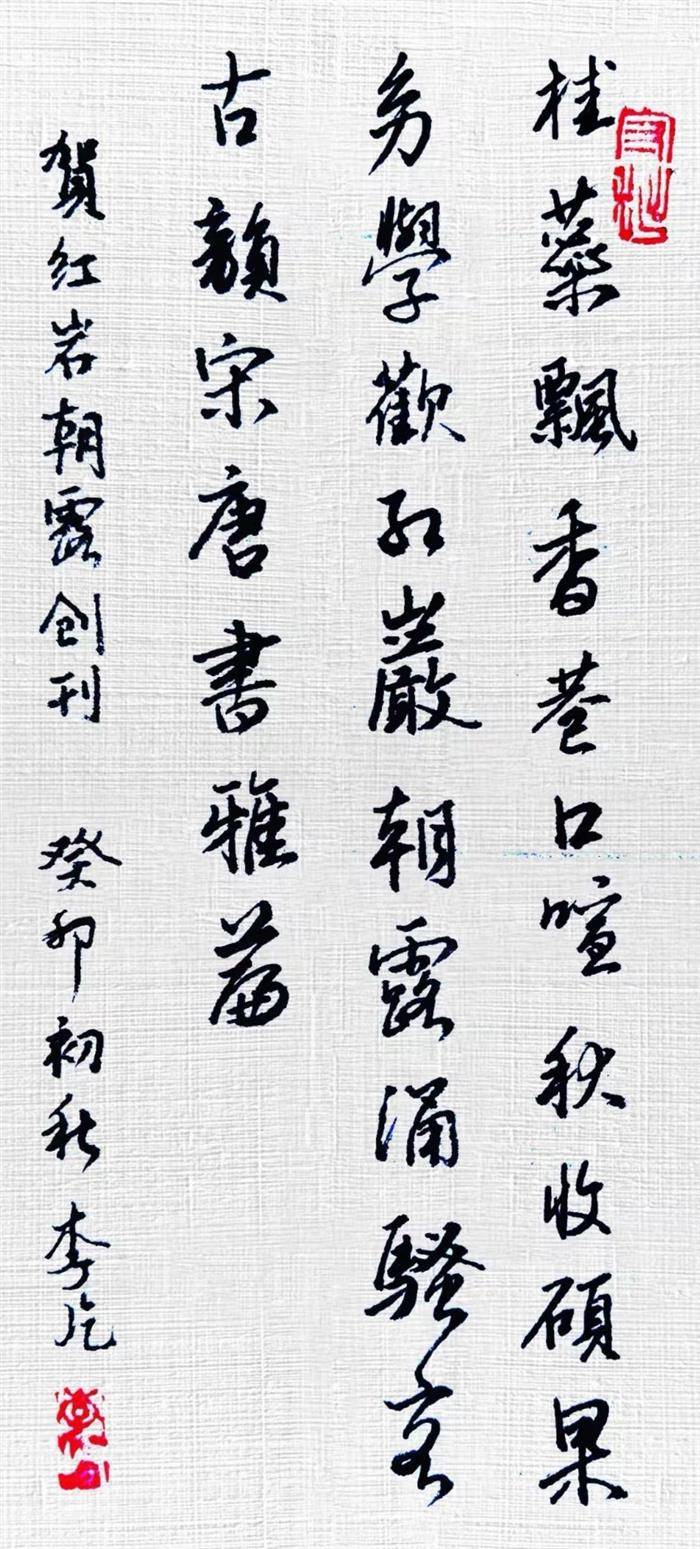 桂蘂飄香巷口喧秋收碩果
學歡紅巖朝露涌騷客
古韻宋唐書雅篇
賀红岩朝露创刊 癸卯初秋 李